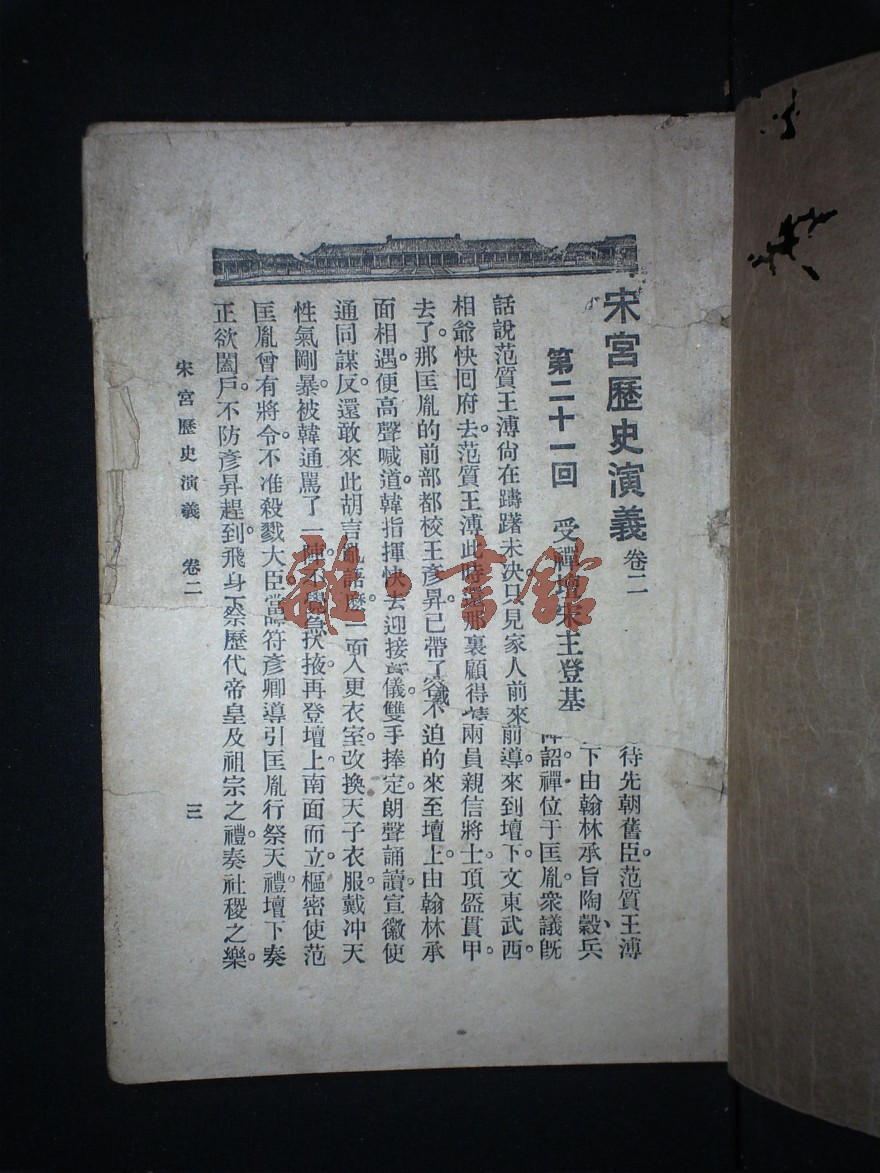 宋宮歷史演義 卷二
待先朝舊臣。范質王溥
下由翰林承旨陶穀、兵
第二十一回 受禪壇宋主登基
詔禪位于匡胤。衆議旣
話說范質王溥尙在躊躇未決。只見家人前來前導。來到壇下。文東武西。
相爺快回府去。范質王溥此時還那裏顧得 兩員親信將士。頂盔貫甲。
去了。那匡胤的前部都校王彥昇。已帶了 不迫的來至壇上。由翰林承
面相遇。便高聲喊道。韓指揮快去迎接 儀雙手捧定。朗聲誦讀。宣徽使
通同謀反。還敢來此胡言亂語麼。一面 入更衣室。改換天子衣服。戴冲天
性氣剛暴。被韓通罵了一陣。不覺急 扶掖再登壇上。南面而立。樞密使范
匡胤曾有將令。不准殺戮大臣。當 符彥卿導引匡胤行祭天禮。壇下奏
正欲闔戶。不防彥昇趕到。飛身 祭歷代帝皇及祖宗之禮。奏社稷之樂。
宋宮歷史演義 卷二 三
雜·書館